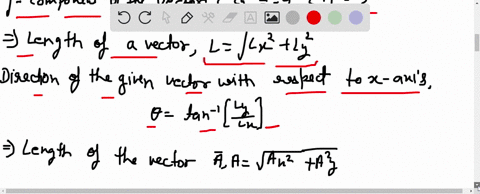 ⇒) Length of a vector, L = √Lx² + Ly²
Direction of the given vector with respect to x-axis,
θ = tan⁻¹ [Ly/Lx]
⇒) Length of the vector A̅, A = √Ax² + A²y